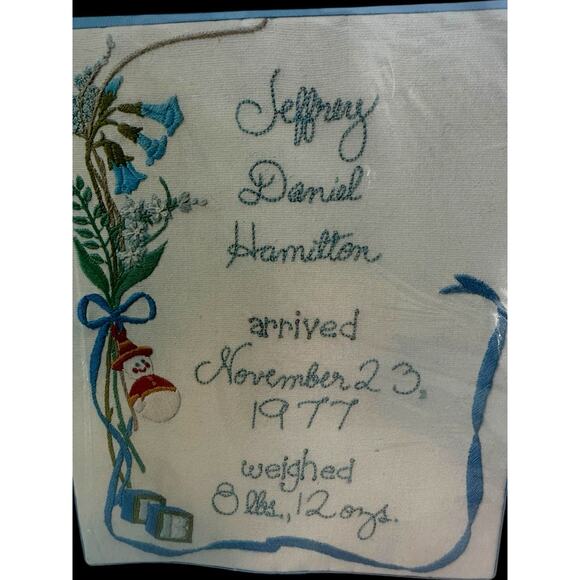 Jeffrey
Daniel
Hamilton
arrived
November 23,
1977
weighed
8 lbs., 12 ozs.